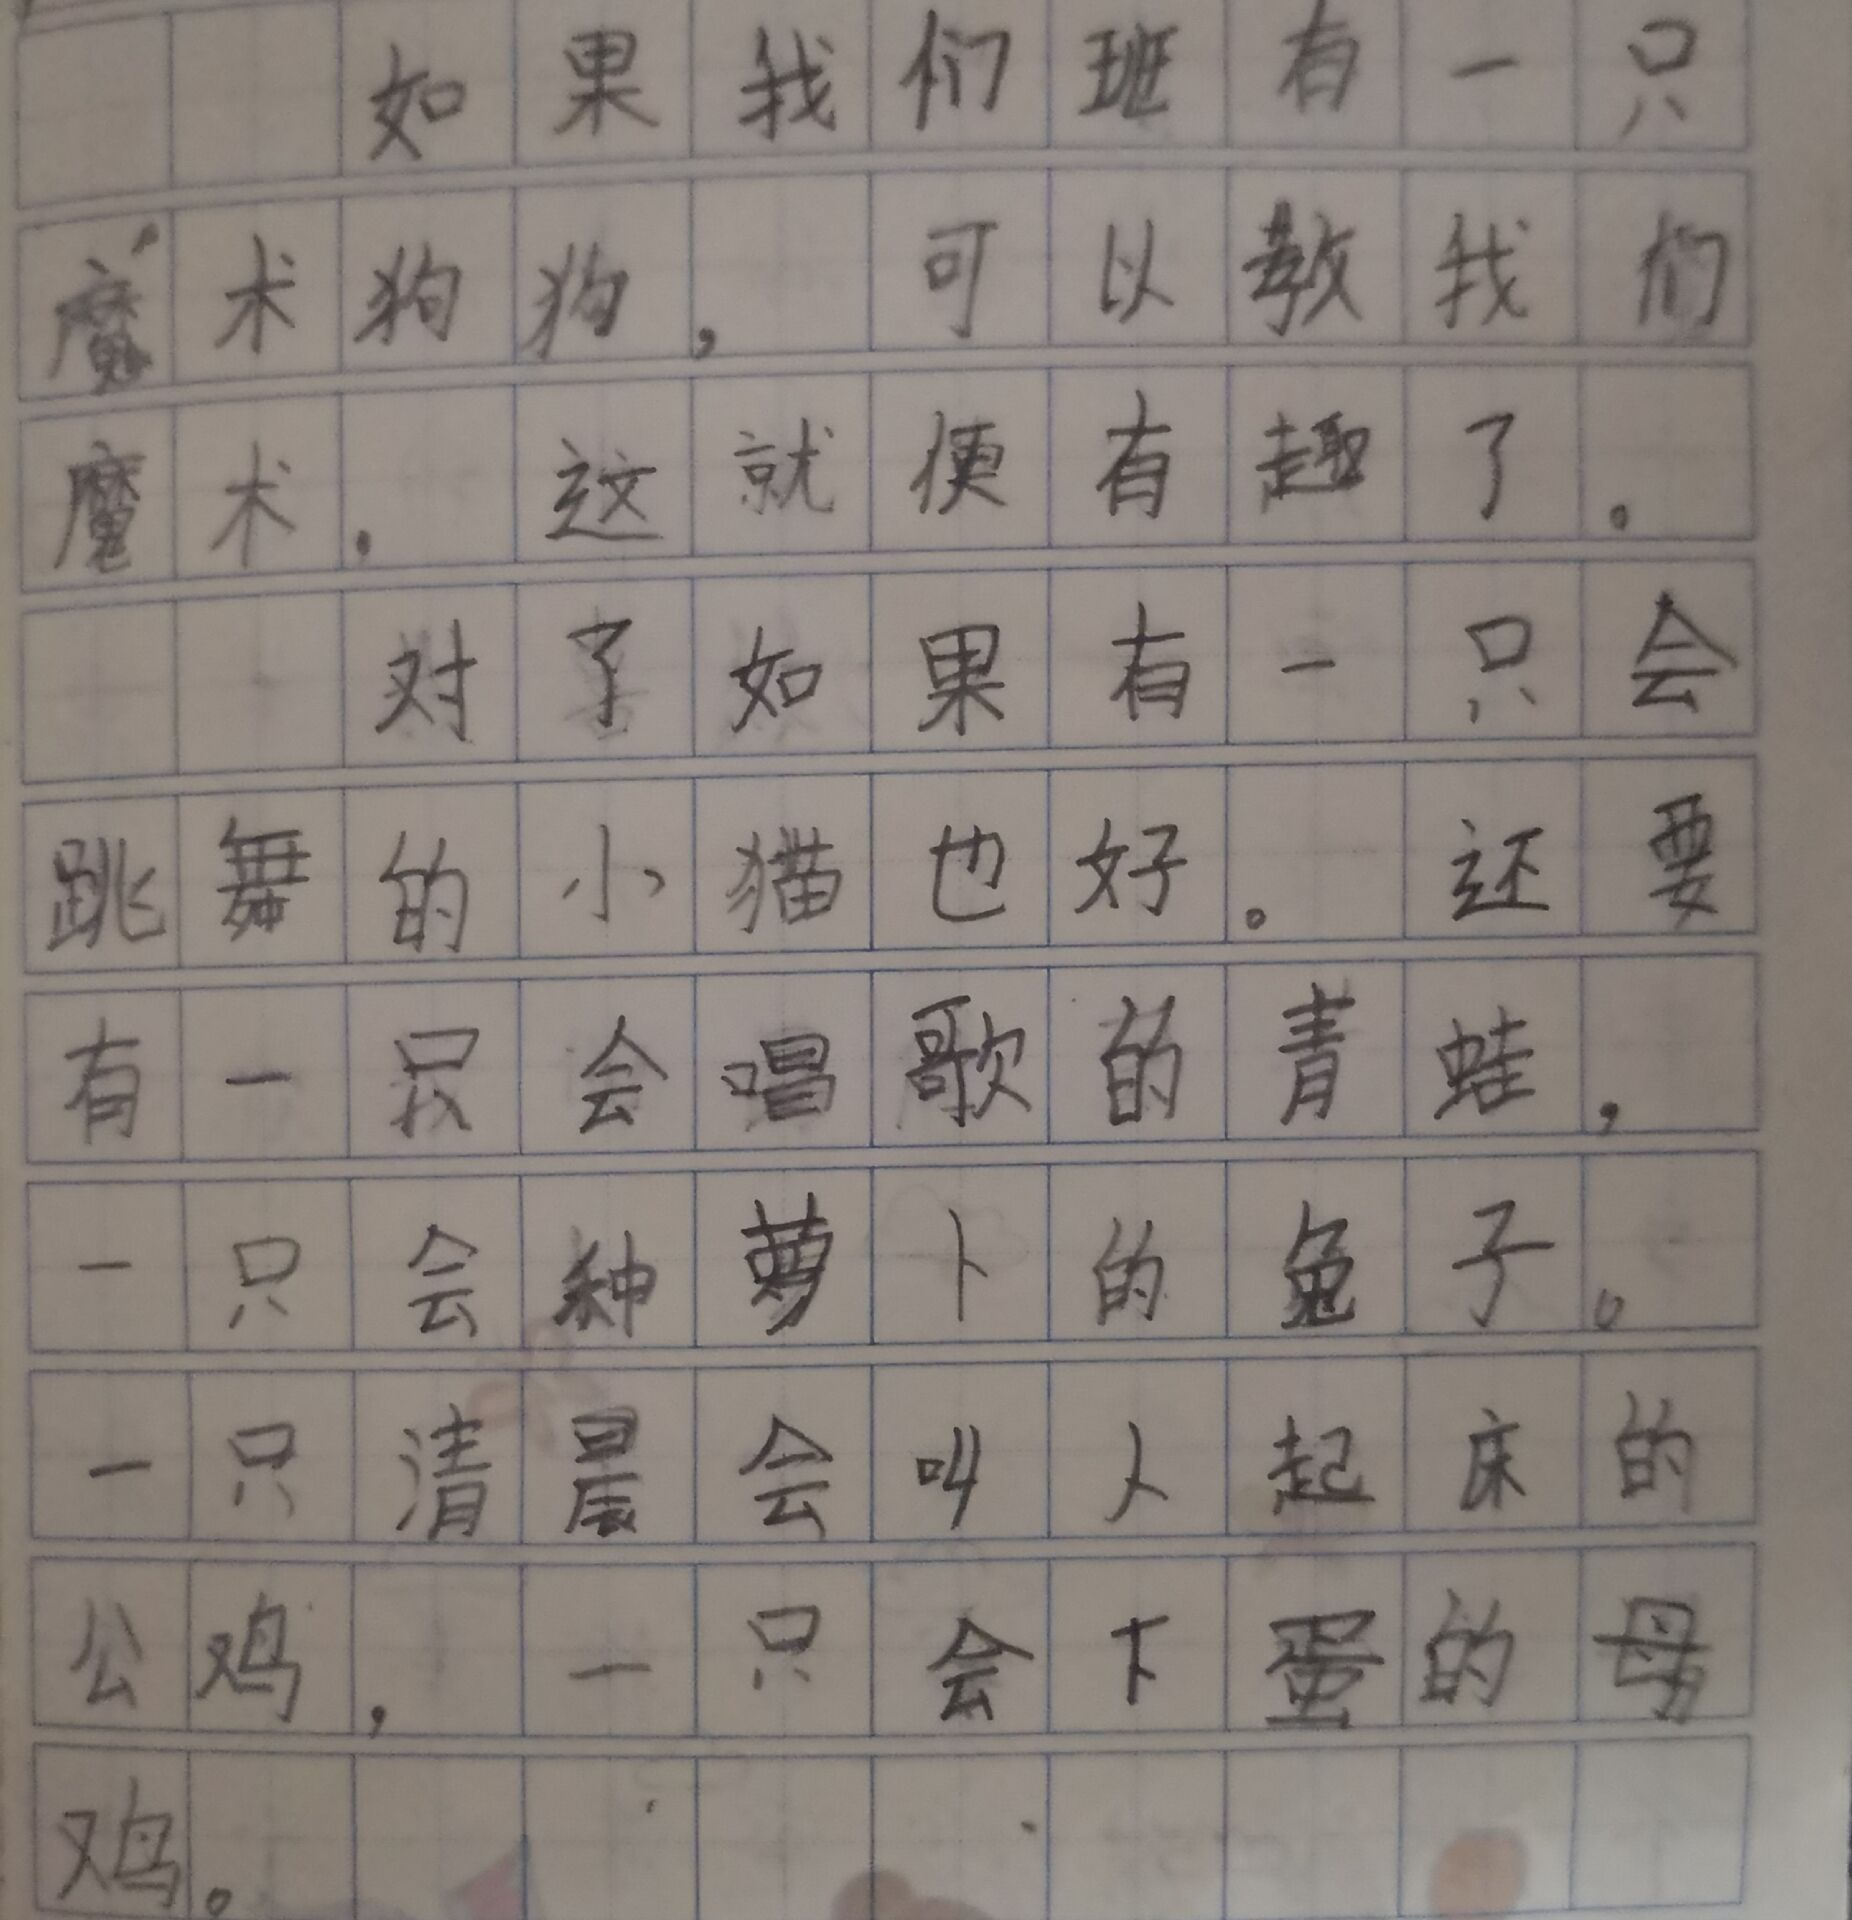 如果我们班有一只
魔术狗狗，可以教我们
魔术。这就便有趣了。
对了如果有一只会
跳舞的小猫也好。还要
有一只会唱歌的青蛙，
一只会种萝卜的兔子。
一只清晨会叫人起床的
公鸡，一只会下蛋的母
鸡。